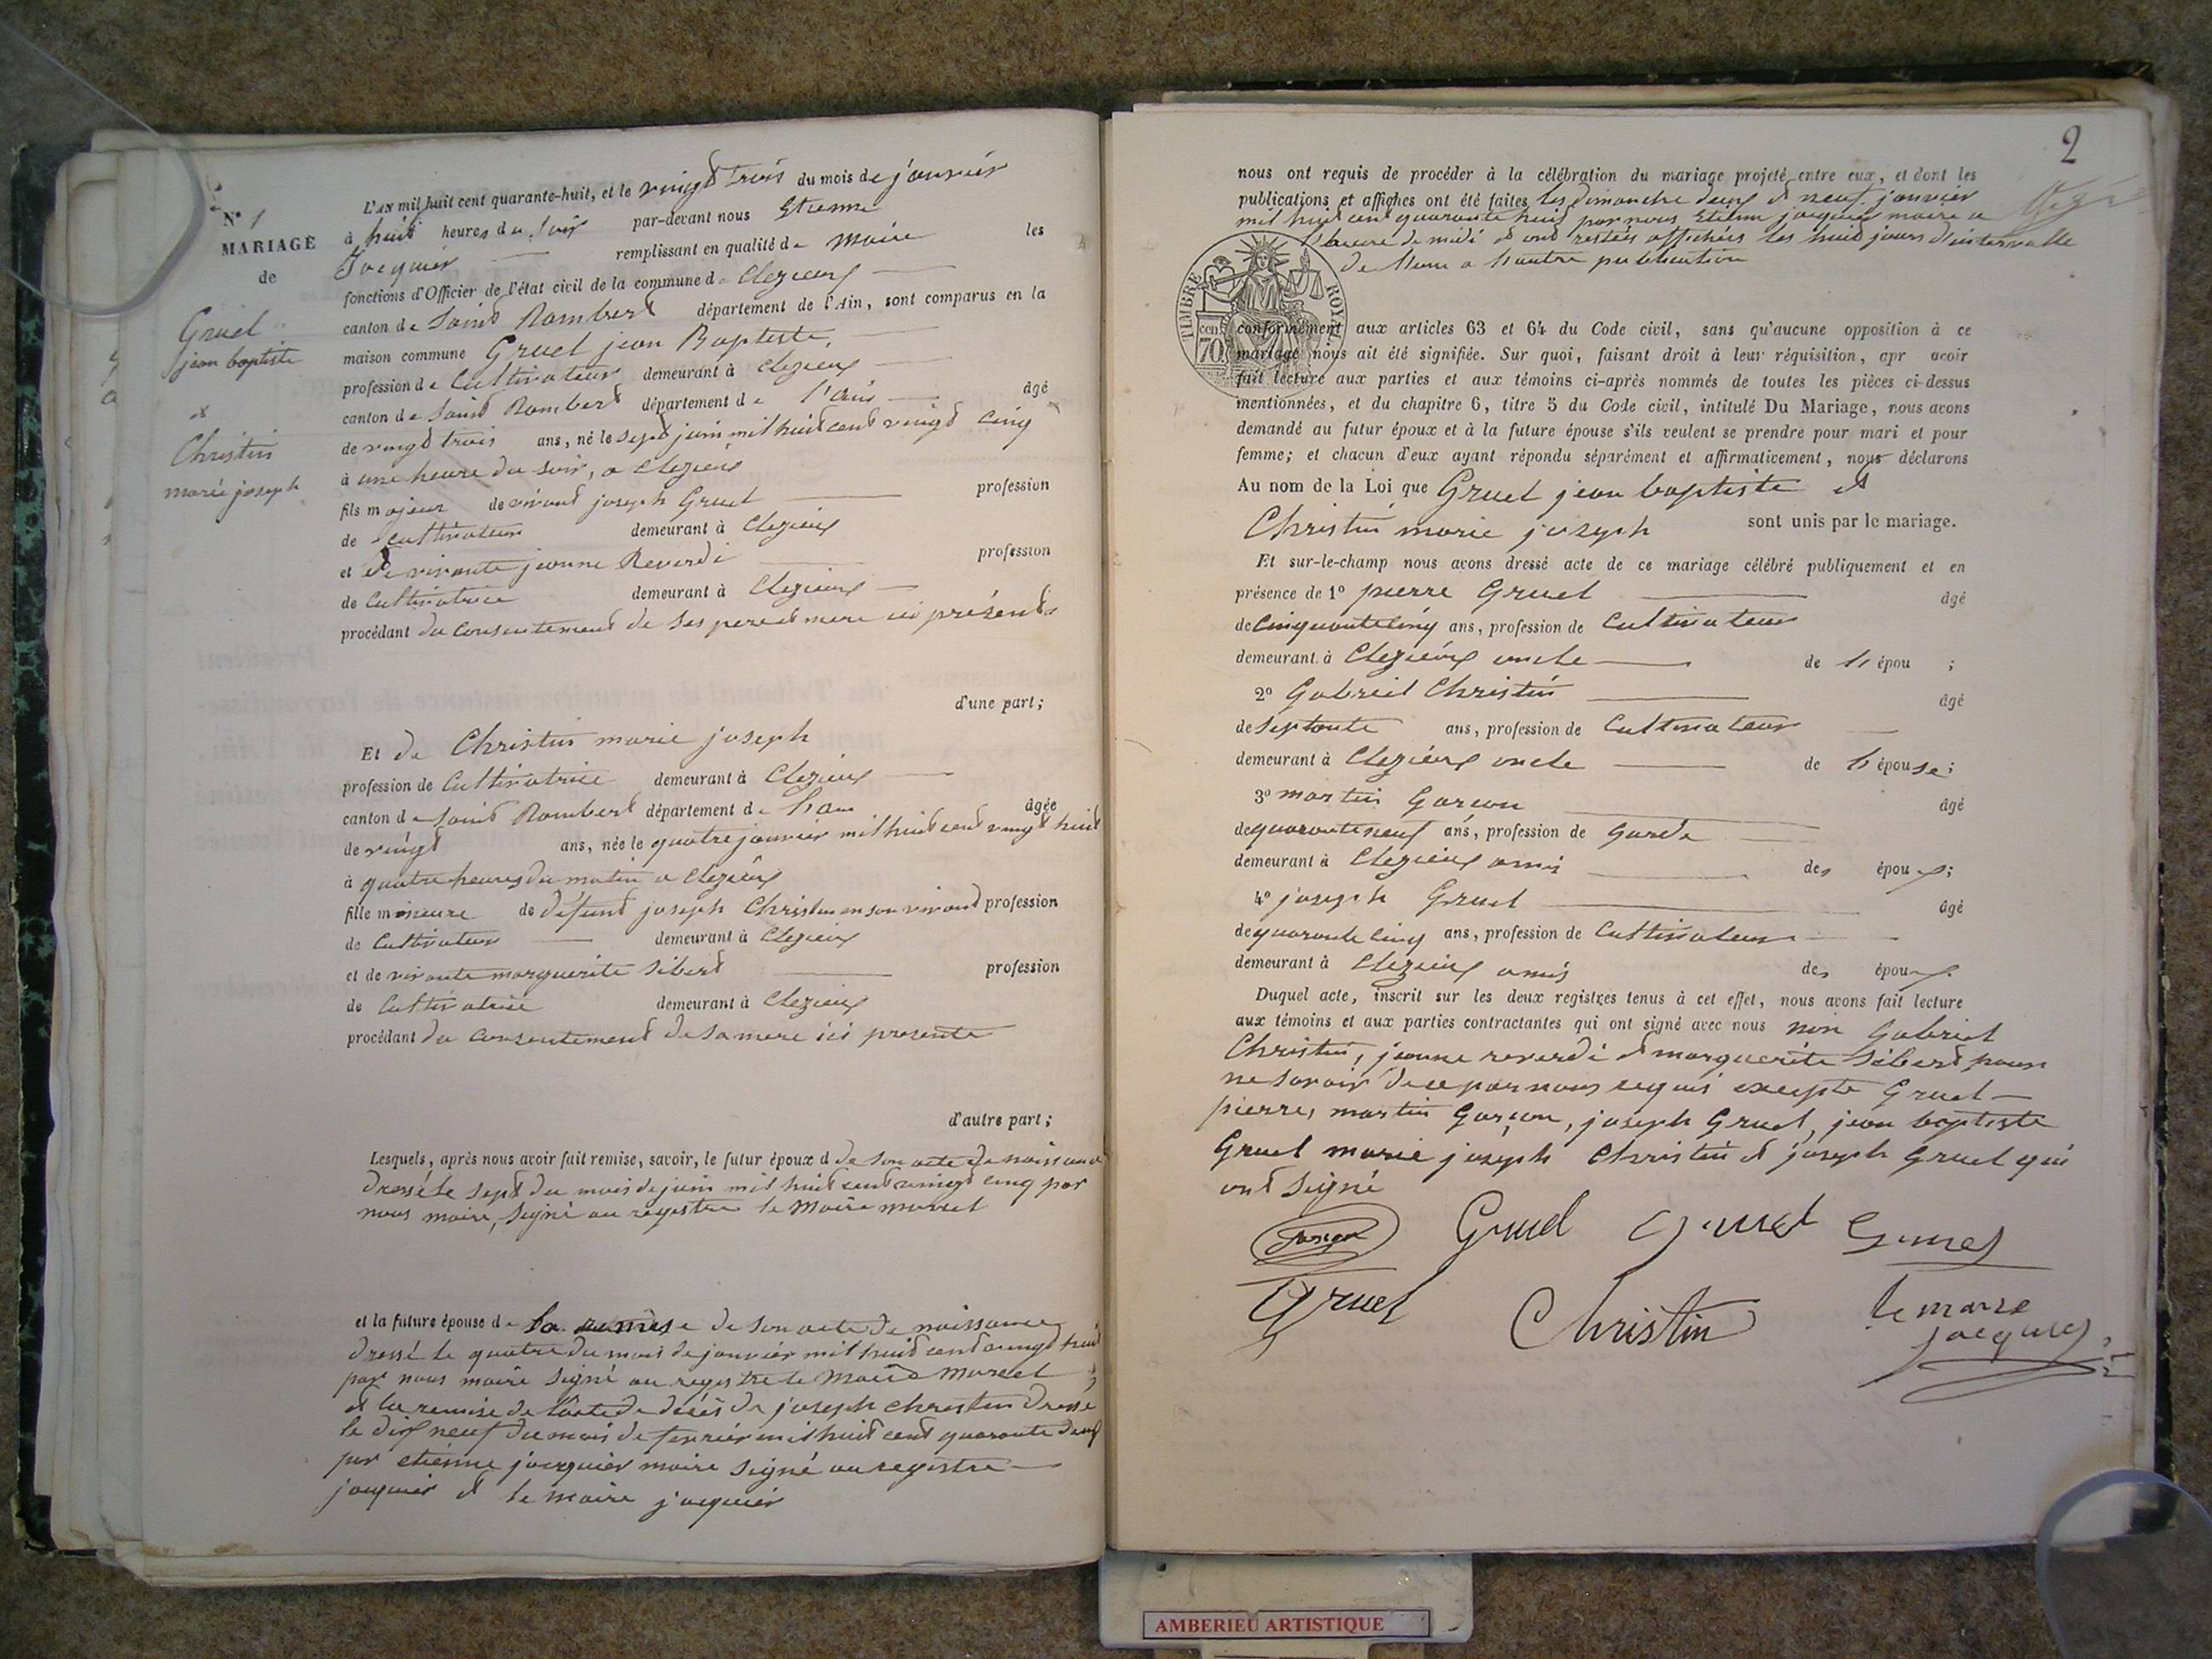 N° 1
MARIAGE
de
Gruel
jean baptiste
et
Christin
marie joseph
L'an mil huit cent quarante-huit, et le vingt trois du mois de janvier
à huit heures du soir par-devant nous Etienne
Jacquier remplissant en qualité de maire les
fonctions d'Officier de l'état civil de la commune de Clezieux
canton de Saint Rambert département de l'Ain, sont comparus en la
maison commune Gruel jean Baptiste,
profession de Cultivateur demeurant à Clezieux
canton de Saint Rambert département de l'ain âgé
de vingt trois ans, né le sept juin mil huit cent vingt cinq
à une heure du soir, a Clezieux
fils majeur de vivant joseph Gruel profession
de Cultivateur demeurant à Clezieux
et de vivante jeanne Reverdi profession
de Cultivatrice demeurant à Clezieux
procédant du consentement de ses pere et mere ici présents
d'une part;
Et de Christin marie joseph
profession de Cultivatrice demeurant à Clezieux
canton de Saint Rambert département de l'ain âgée
de vingt ans, née le quatre janvier mil huit cent vingt huit
à quatre heures du matin a Clezieux
fille mineure de défunt joseph Christin en son vivant profession
de Cultivateur demeurant à Clezieux
et de vivante marguerite Sibert profession
de Cultivatrice demeurant à Clezieux
procédant du consentement de sa mere ici presente
d'autre part;
Lesquels, après nous avoir fait remise, savoir, le futur époux d de son acte de naissance
dressé le sept du mois de juin mil huit cent vingt cinq par
nous maire, signé au registre le Maire
et la future épouse de la remise de son acte de naissance
dressé le quatre du mois de janvier mil huit cent vingt huit
par nous maire signé au registre le Maire
et la remise de l'acte de décès de joseph Christin dressé
le dix neuf du mois de fevrier mil huit cent quarante deux
par etienne jacquier maire signé au registre
jacquier et le maire jacquier
2
nous ont requis de procéder à la célébration du mariage projeté entre eux, et dont les
publications et affiches ont été faites les dimanche deux et neuf janvier
mil huit cent quarante huit par nous Etienne jacquier maire a
l'heure de midi et ont restées affichées les huit jours d'intervalle
de l'une a l'autre publication
TIMBRE ROYAL
70 cen
conformément aux articles 63 et 64 du Code civil, sans qu'aucune opposition à ce
mariage nous ait été signifiée. Sur quoi, faisant droit à leur réquisition, apr avoir
fait lecture aux parties et aux témoins ci-après nommés de toutes les pièces ci-dessus
mentionnées, et du chapitre 6, titre 5 du Code civil, intitulé Du Mariage, nous avons
demandé au futur époux et à la future épouse s'ils veulent se prendre pour mari et pour
femme; et chacun d'eux ayant répondu séparément et affirmativement, nous déclarons
Au nom de la Loi que Gruel jean baptiste et
Christin marie joseph sont unis par le mariage.
Et sur-le-champ nous avons dressé acte de ce mariage célébré publiquement et en
présence de 1° pierre Gruel âgé
de Cinquante Cinq ans, profession de Cultivateur
demeurant à Clezieux oncle de l' épou ;
2° Gabriel Christin âgé
de Septante ans, profession de Cultivateur
demeurant à Clezieux oncle de l' épouse;
3° martin Garçon âgé
de quarante neuf ans, profession de Garde
demeurant à Clezieux ami des époux;
4° joseph Gruel âgé
de quarante cinq ans, profession de Cultivateur
demeurant à Clezieux amis des époux.
Duquel acte, inscrit sur les deux registres tenus à cet effet, nous avons fait lecture
aux témoins et aux parties contractantes qui ont signé avec nous non Gabriel
Christin, jeanne reverdi et marguerite Sibert pour
ne savoir de ce par nous requis excepte Gruel
pierre, martin Garçon, joseph Gruel, jean baptiste
Gruel marie joseph Christin et joseph Gruel qui
ont signé
Gruel Gruel Gruel
Gruel Christin le maire
jacquier
AMBERIEU ARTISTIQUE